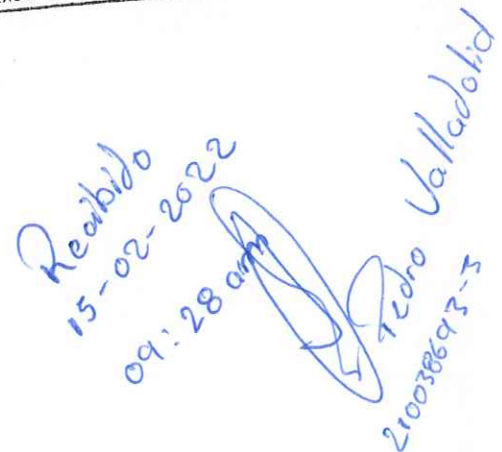 Recibido
15-02-2022
09:28 am
Pedro Valladolid
210038693-3